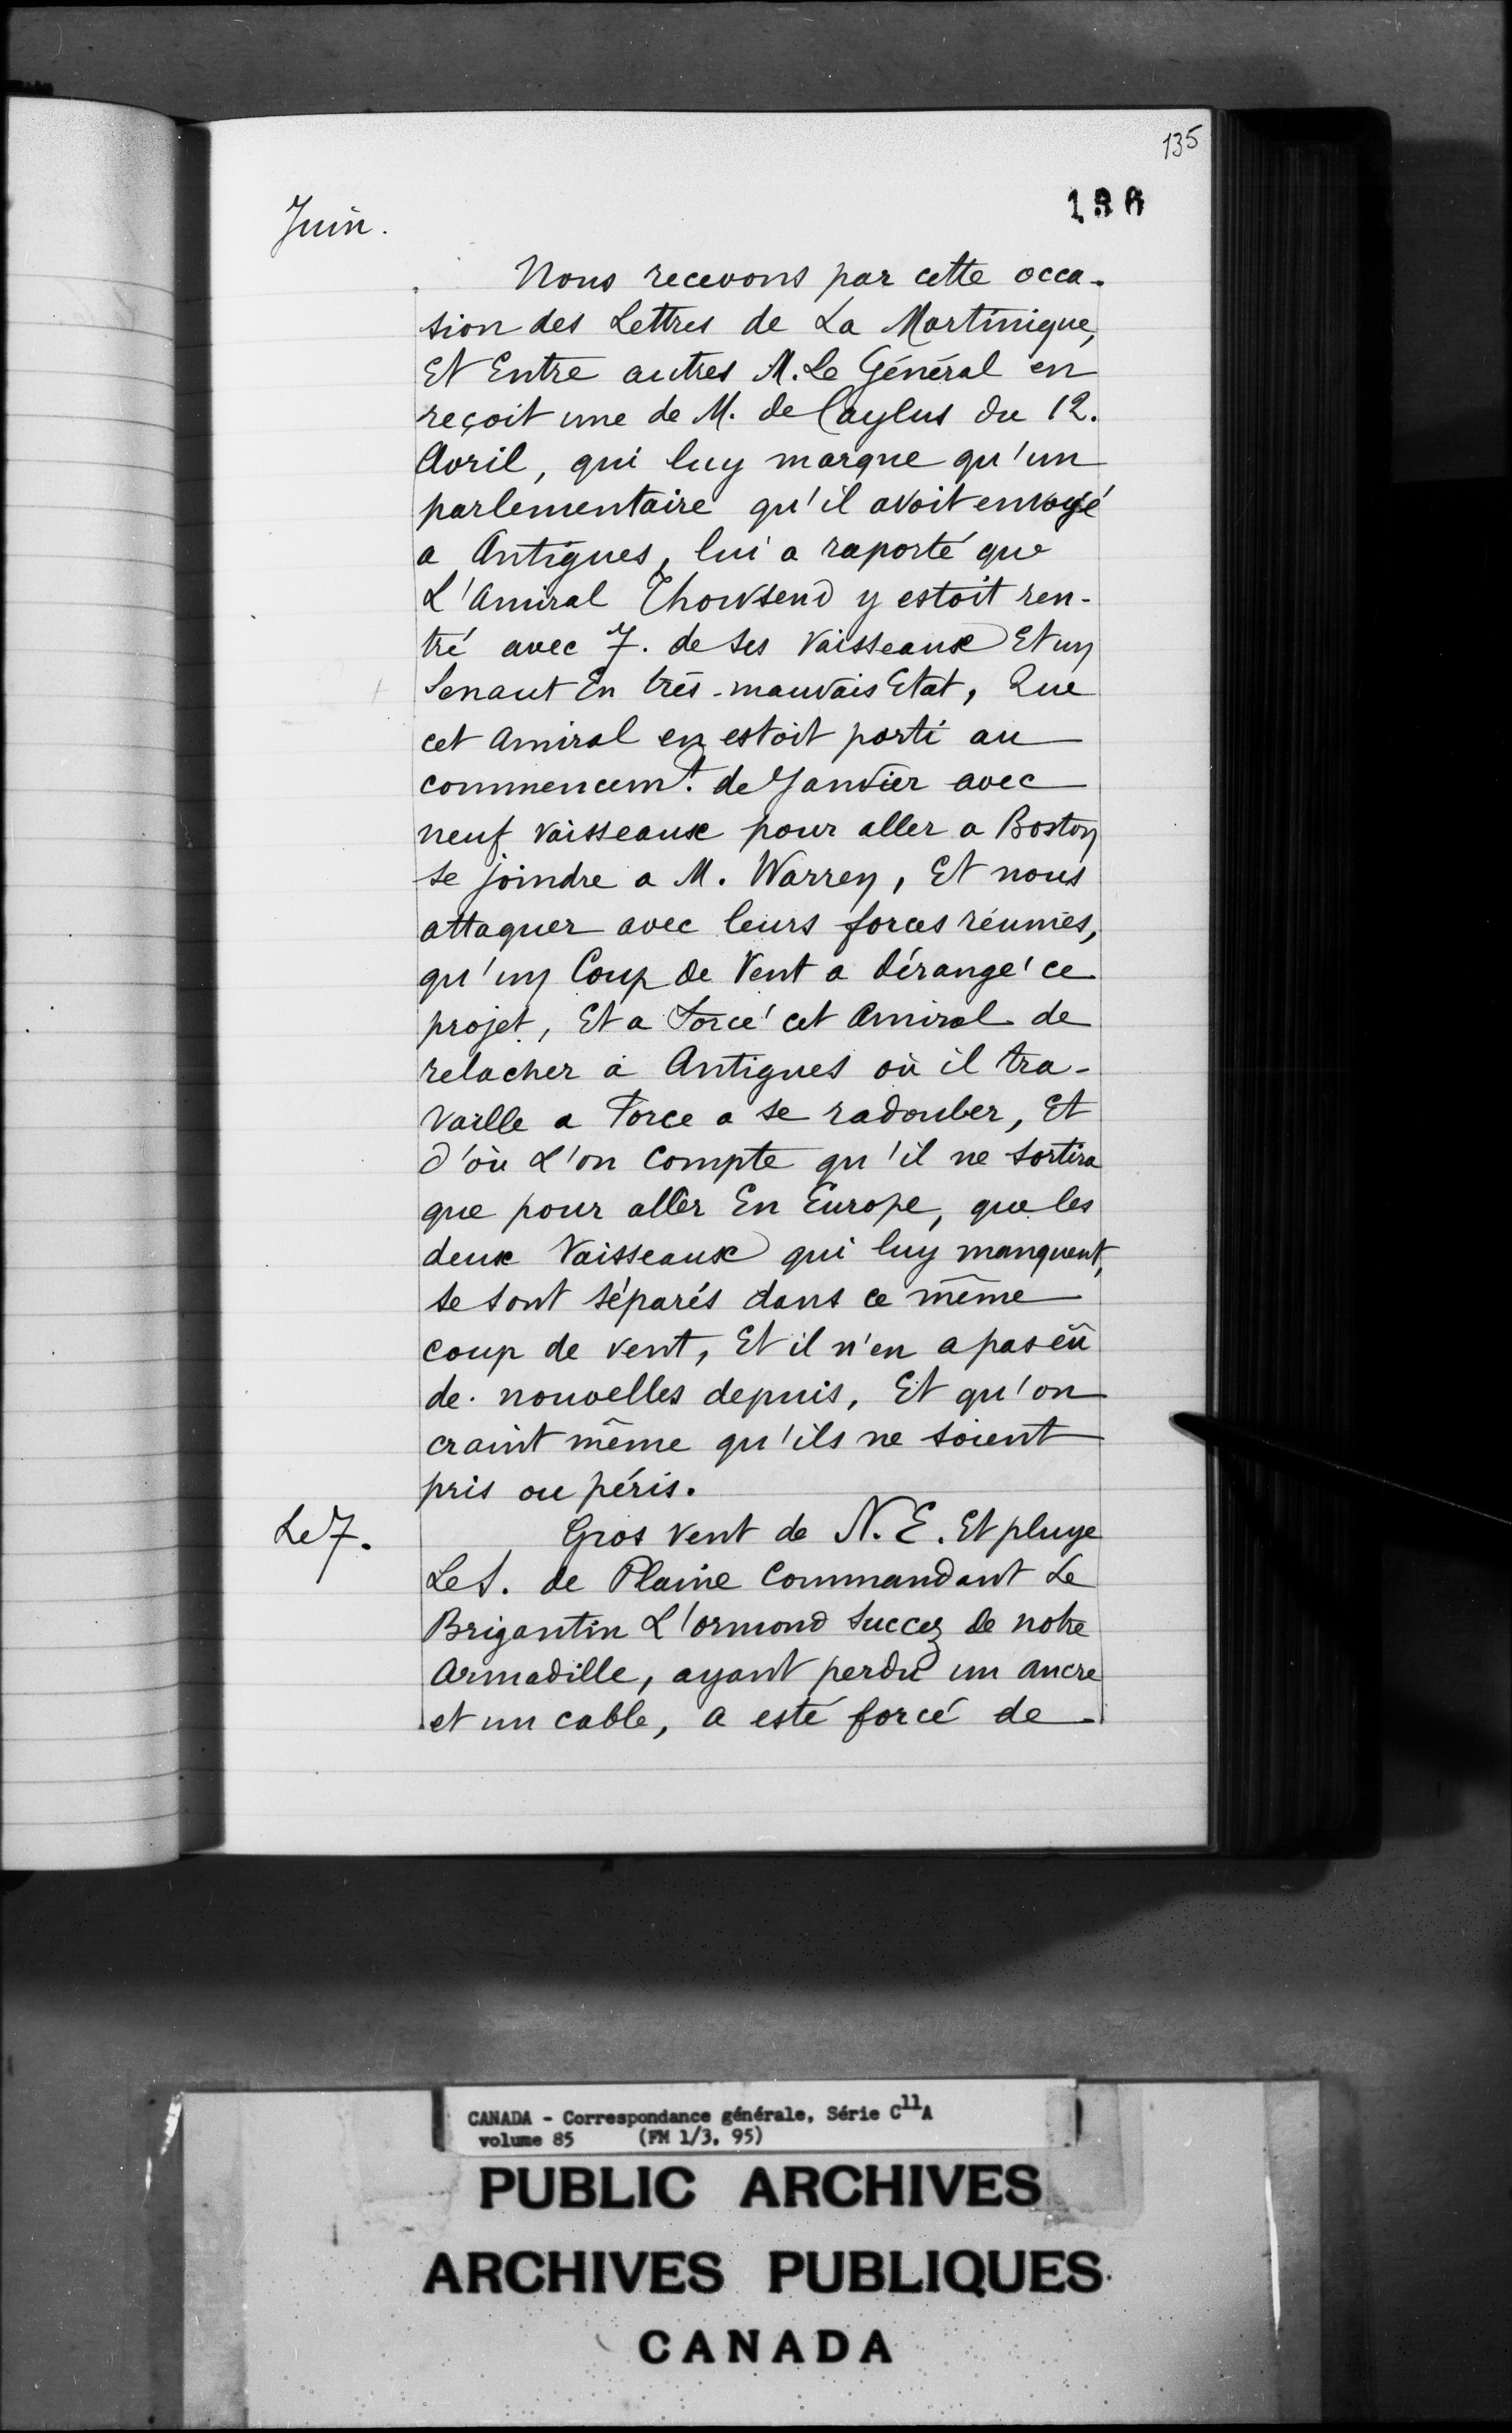 135
136
Juin.
Nous recevons par cette occa-
sion des Lettres de La Martinique,
Et Entre autres M. Le Général en
reçoit une de M. de Caylus du 12.
Avril, qui luy marque qu'un
parlementaire qu'il avoit envoyé
a Antigues, lui a raporté que
L'Amiral Thowsend y estoit ren-
tré avec 7. de ses Vaisseaux Et un
Senaut En très-mauvais Etat, Que
cet Amiral en estoit parti au
commencemt. de Janvier avec
neuf Vaisseaux pour aller a Boston
se joindre a M. Warren, Et nous
attaquer avec leurs forces réunies,
qu'un Coup de Vent a dérangé ce
projet, Et a Forcé cet Amiral de
relacher à Antigues où il tra-
vaille a Force a se radouber, Et
d'où L'on Compte qu'il ne sortira
que pour aller En Europe, que les
deux Vaisseaux qui luy manquent,
se sont séparés dans ce même
coup de vent, Et il n'en a pas eû
de nouvelles depuis, Et qu'on
craint même qu'ils ne soient
pris ou péris.
Le 7.
Gros Vent de N. E. Et pluye
Le S. de Plaine Commandant Le
Brigantin L'ormond Succez de notre
Armadille, ayant perdu un ancre
et un cable, a esté forcé de
CANADA - Correspondance générale, Série C11A
volume 85 (FM 1/3, 95)
PUBLIC ARCHIVES
ARCHIVES PUBLIQUES
CANADA